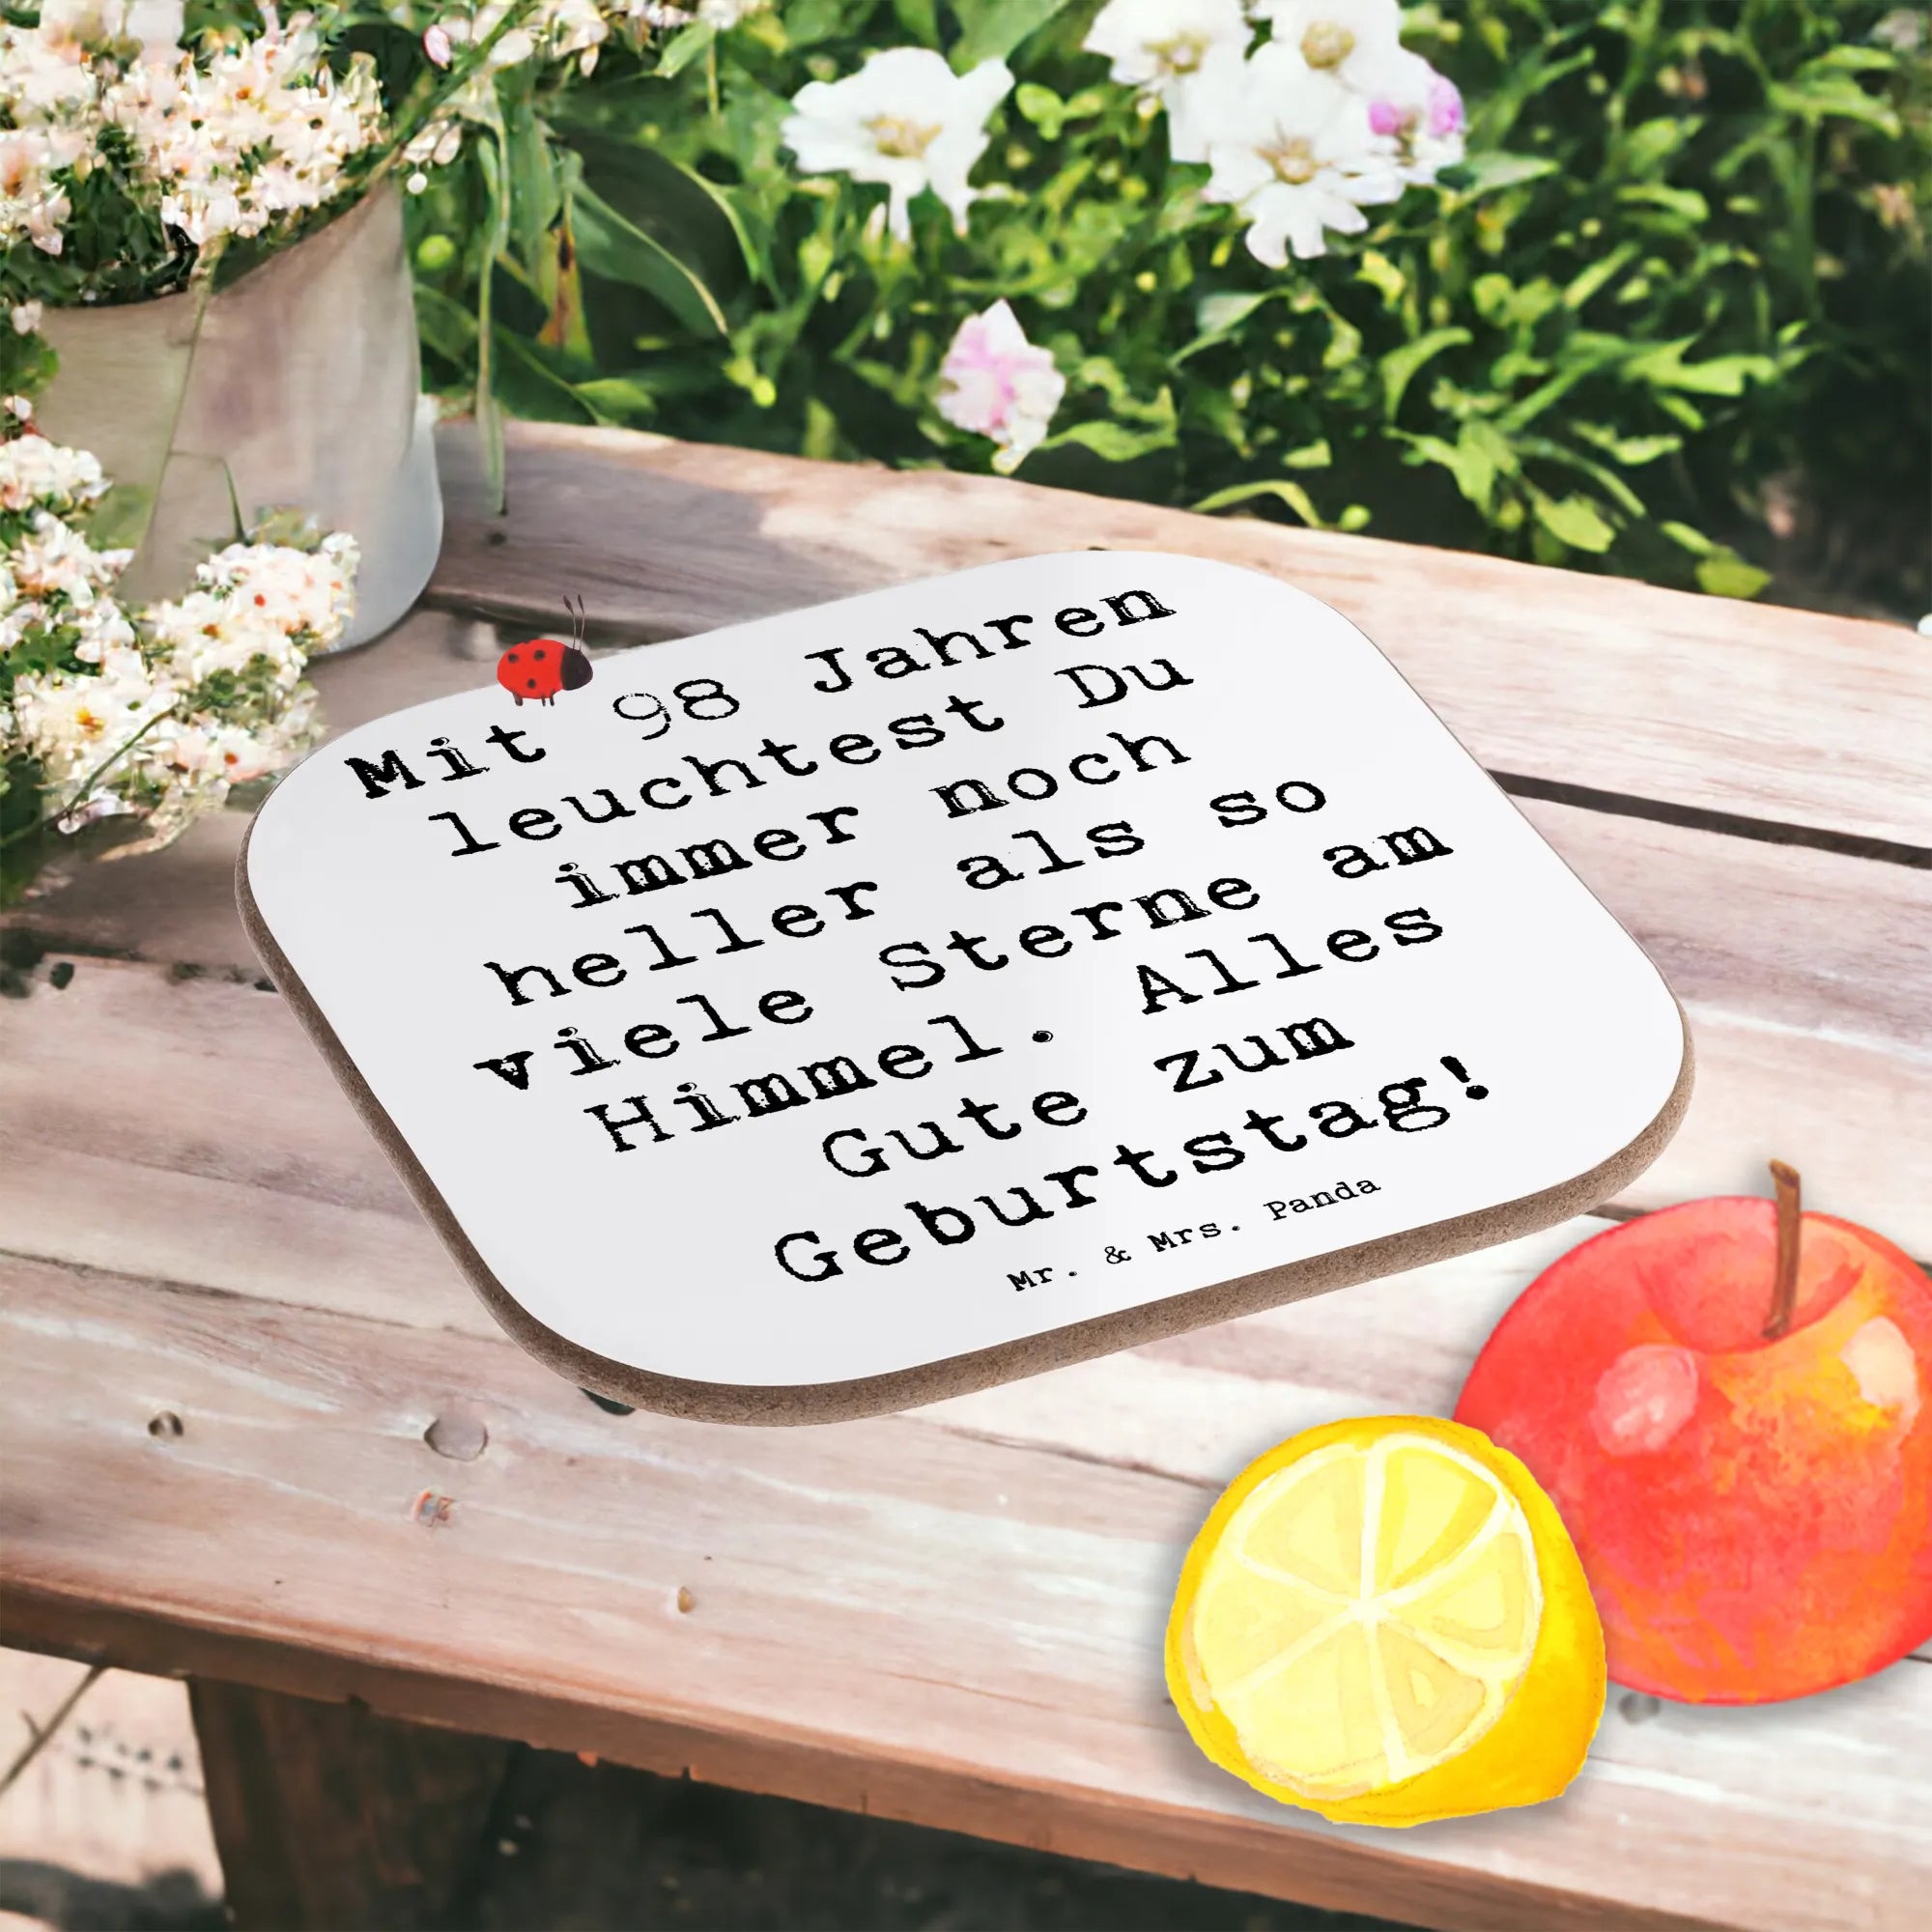 Mit 98 Jahren
leuchtest Du
immer noch
heller als so
viele Sterne am
Himmel. Alles
Gute zum
Geburtstag!
Mr. & Mrs. Panda